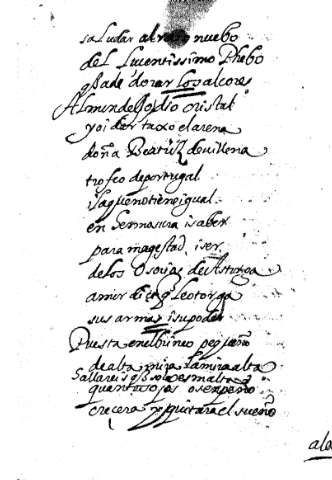 saludar al rayo nuebo
del lucentissimo Phebo
q̃ sale 'dorar los alcores
Al mundo dio cristal
y oi der taxo el arena
doña Beatriz de villena
trofeo de portugal
i la que no tiene igual
en hermosura i saber
para magestad, i ser
de los Osorios de Astorga
amor
sus armas i su poder
Puesta en el bu neo pequeño
de alta mira la mira alta
Sallareis q̃ solo esmalta
quantas ojas o sempeño
crecera y quitara el sueño
ala